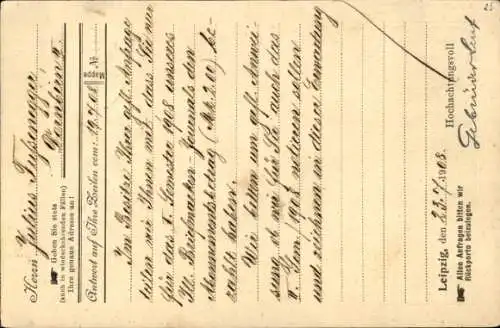 Herrn Julius
Geben Sie stets
(auch in wiederkehrenden Fällen)
Ihre genaue Adresse an!
Mappe
№
Antwort auf Ihre Zeilen vom: 19.7.08.
Im Besitze Ihrer gefl. Anfrage
teilen wir Ihnen mit, dass Sie nur
für das I. Semester 1908 unseres
Ill. Briefmarken-Journals den
Abonnementsbetrag (Mk 2.00) be-
zahlt haben.
Wir bitten um gefl. Anwei-
sung ob wir für Sie auch das
II. Sem. 1908 notieren sollen
und zeichnen in dieser Erwartung
Leipzig, den 23.7.1908.
Hochachtungsvoll
Gebrüder Senf
Allen Anfragen bitten wir
Rückporto beizulegen.